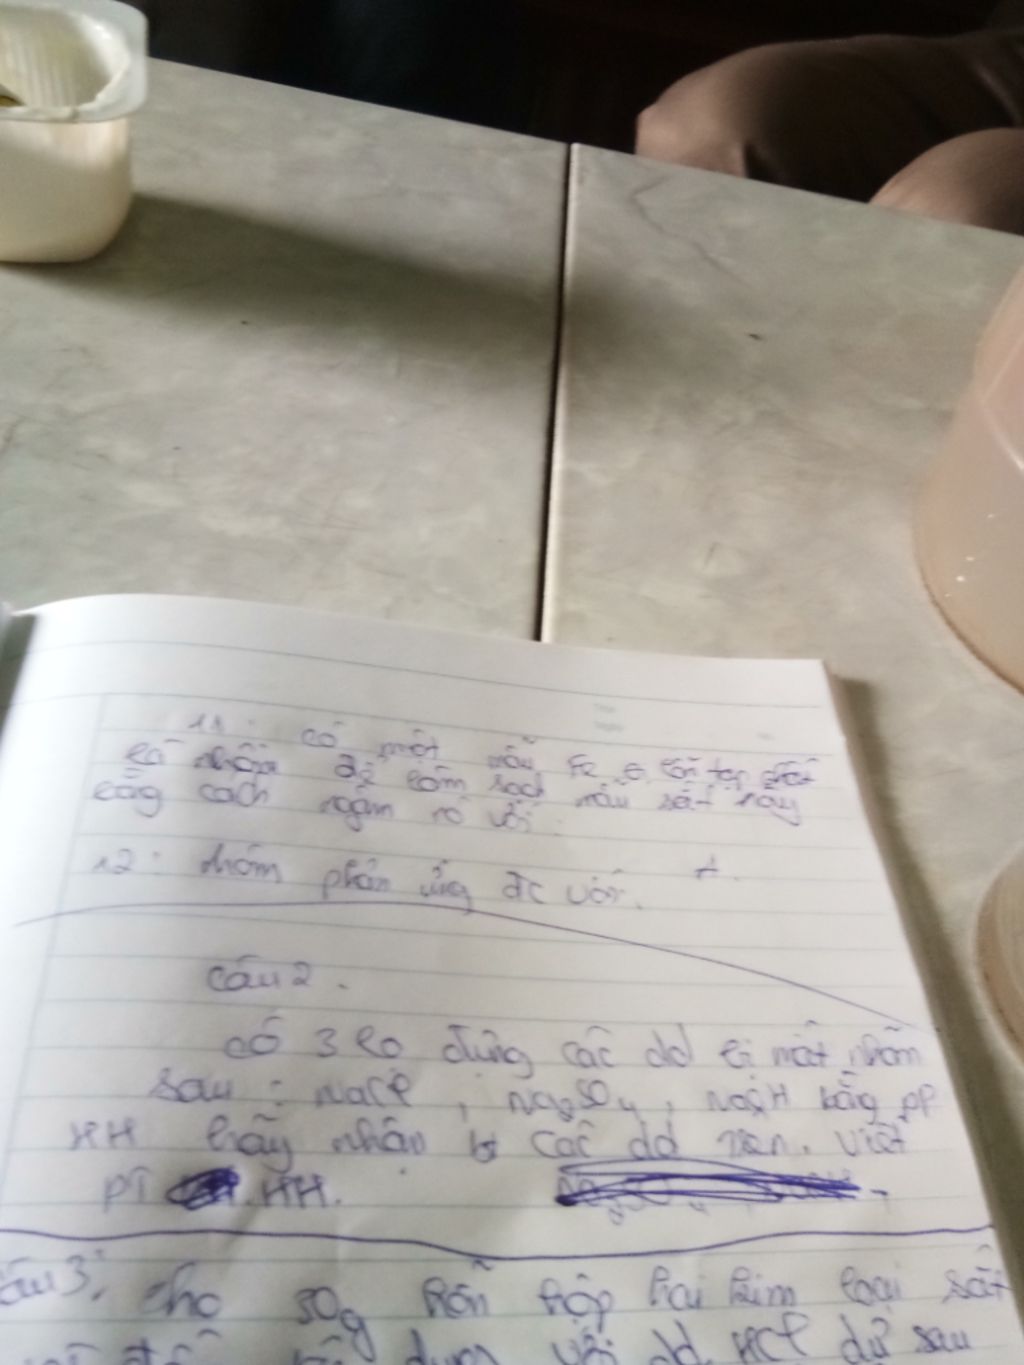 11: có một mẫu Fe lẫn tạp chất
là nhôm để làm sạch mẫu sắt này
cằng cách ngâm nó với:
12: nhôm phản ứng đc với.
câu 2.
có 3 lo đựng các dd bị mất nhãn
sau: NaCl, Na2SO4, NaOH bằng pp
HH hãy nhận b các dd trên. viết
PT HH.
câu 3: cho 30g hỗn hợp hai kim loại sắt
dụng với dd HCl dư sau